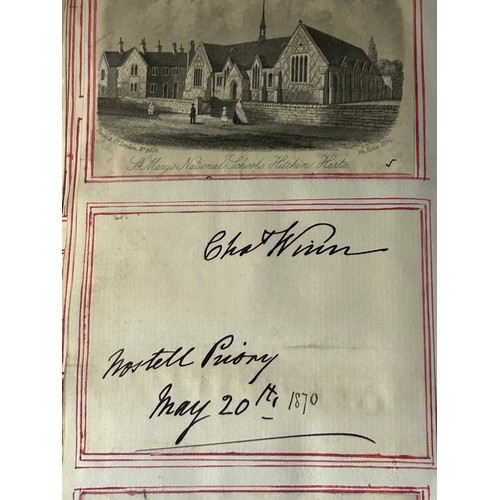 St. Mary's National Schools Hitchin Herts
5
Chas Winn
Nostell Priory
May 20th, 1870